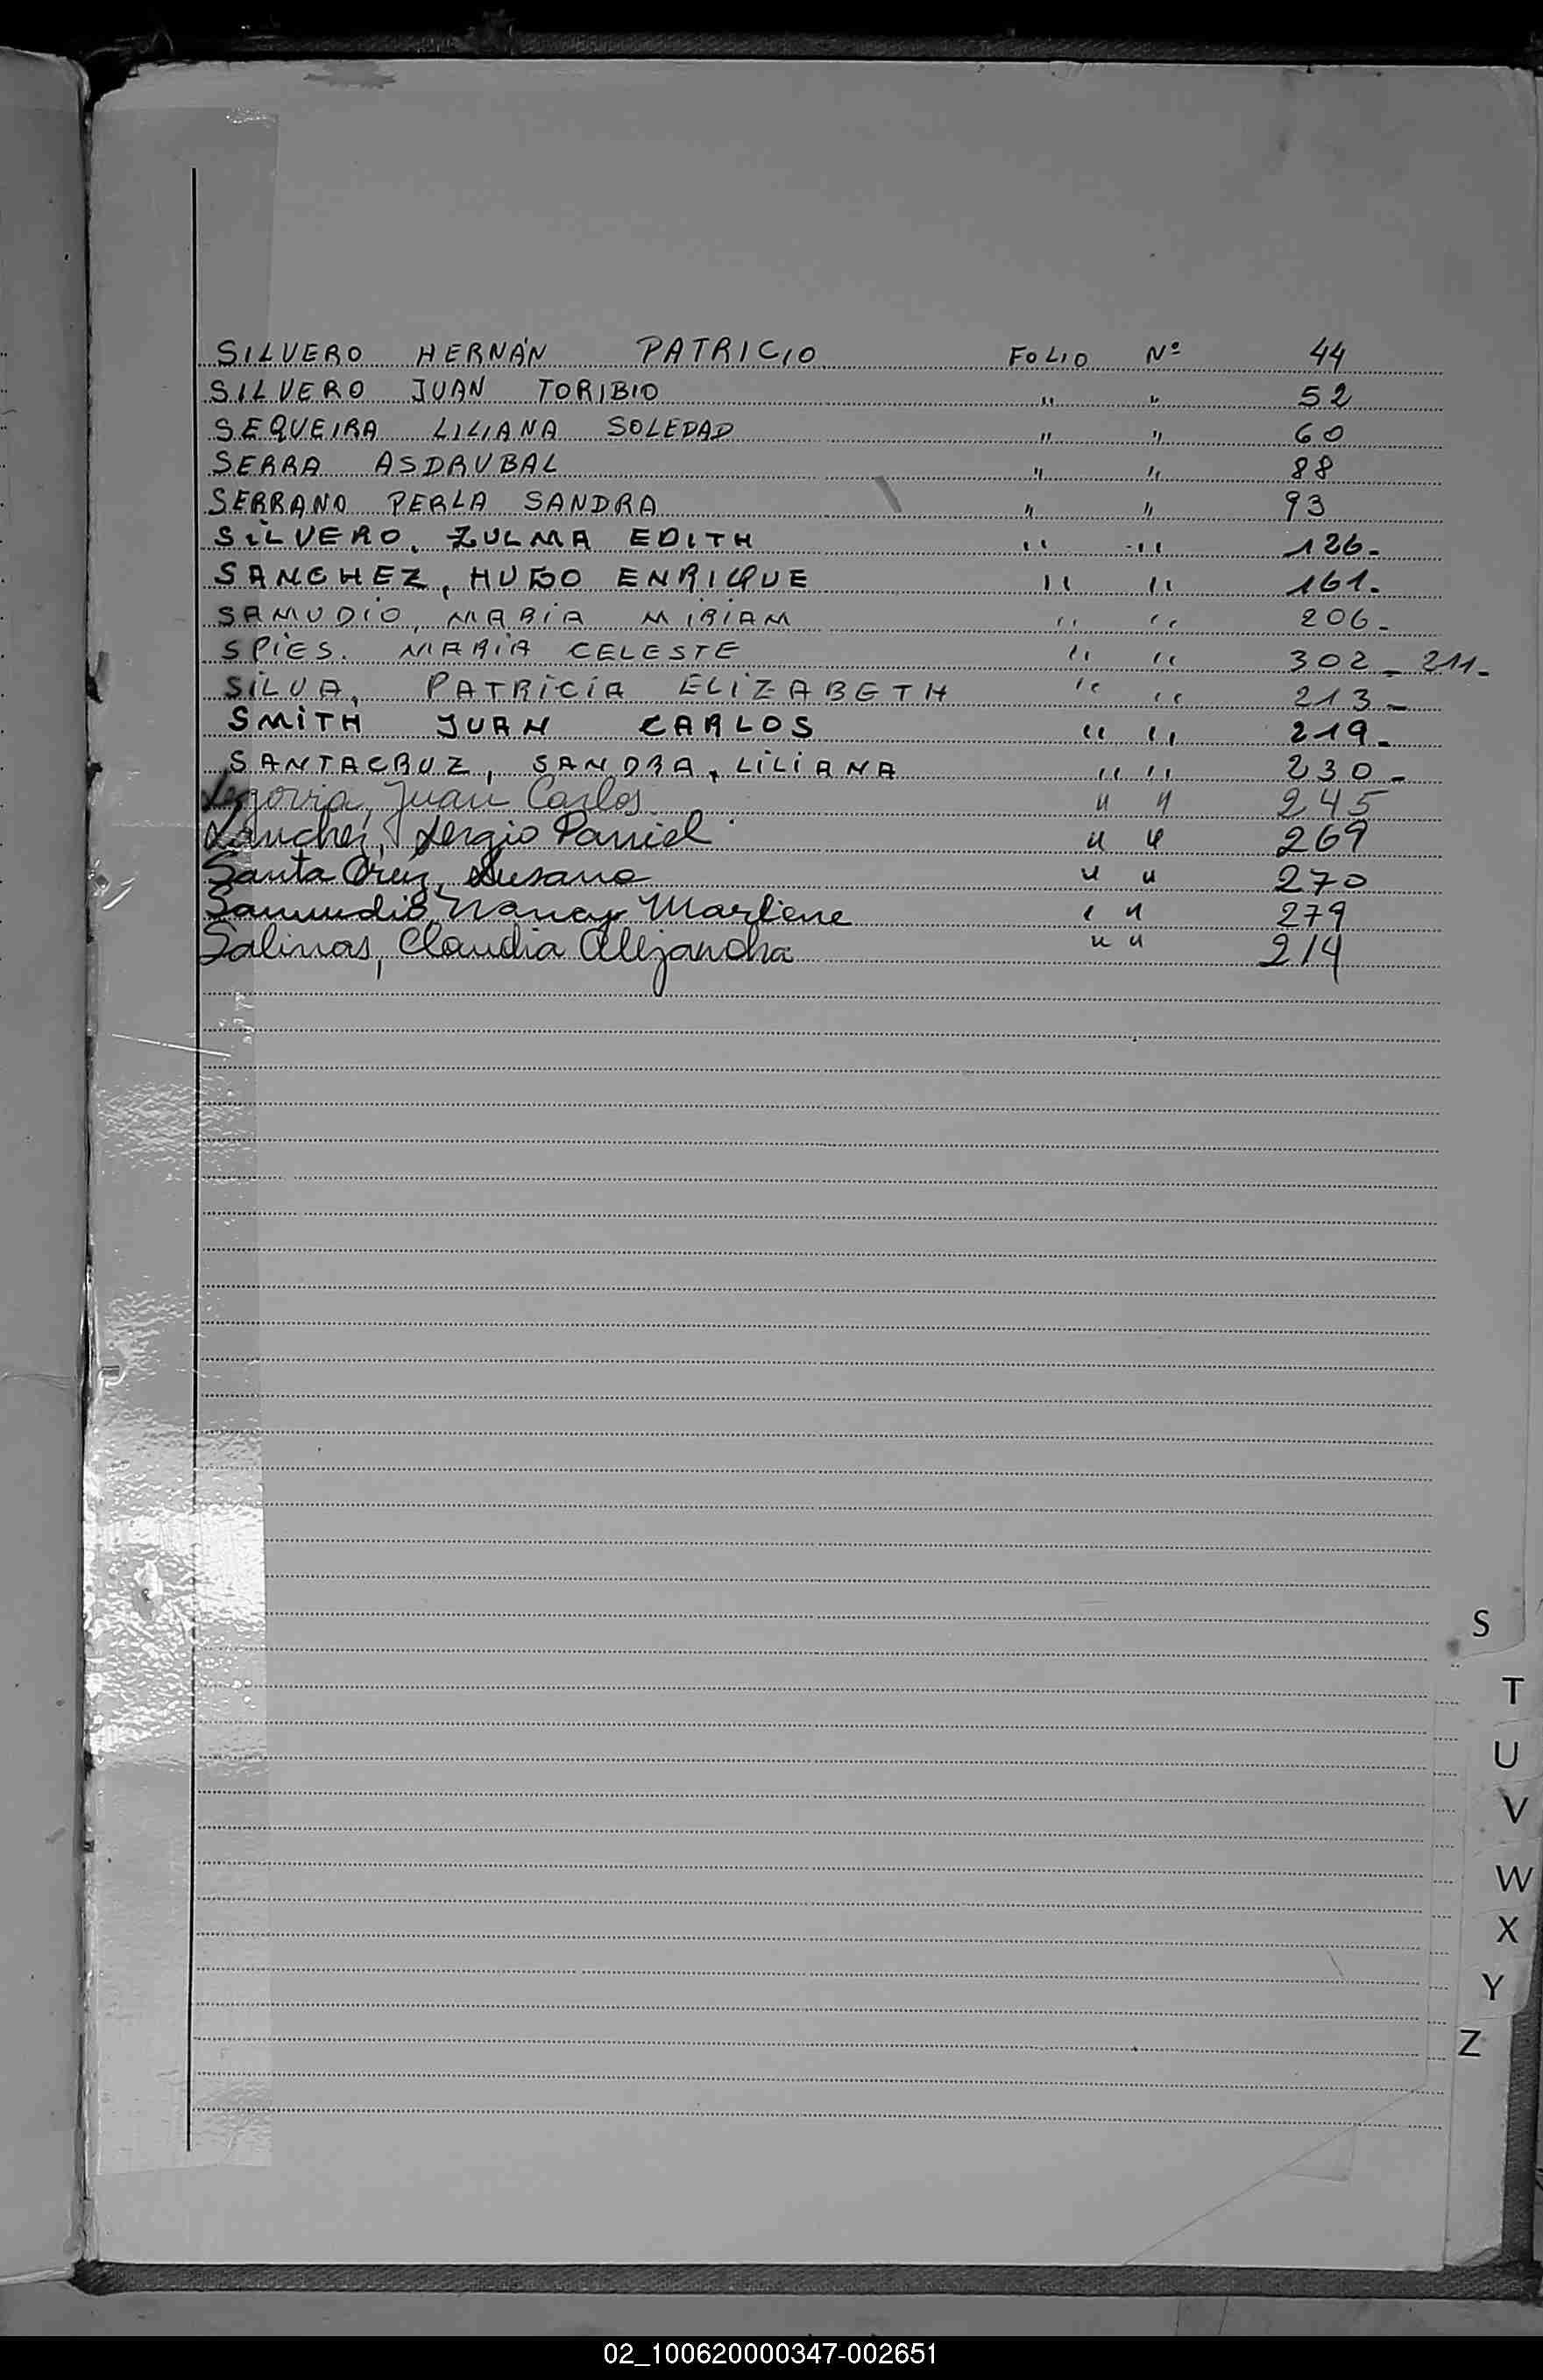 SILVERO HERNÁN PATRICIO FOLIO Nº 44
SILVERO JUAN TORIBIO " " 52
SEQUEIRA LILIANA SOLEDAD " " 60
SERRA ASDRUBAL " " 88
SERRANO PERLA SANDRA " " 93
SILVERO, ZULMA EDITH " " 126-
SANCHEZ, HUGO ENRIQUE " " 161-
SAMUDIO, MARIA MIRIAM " " 206-
SPIES. MARIA CELESTE " " 302-211-
SILVA, PATRICIA ELIZABETH " " 213-
SMITH JUAN CARLOS " " 219-
SANTACRUZ, SANDRA, LILIANA " " 230-
Segovia, Juan Carlos " " 245
Sanchez, Sergio Daniel " " 269
Santa Cruz, Susana " " 270
Samudio, Nancy Marlene " " 279
Salinas, Claudia Alejandra " " 214
S
T
U
V
W
X
Y
Z
02_100620000347-002651